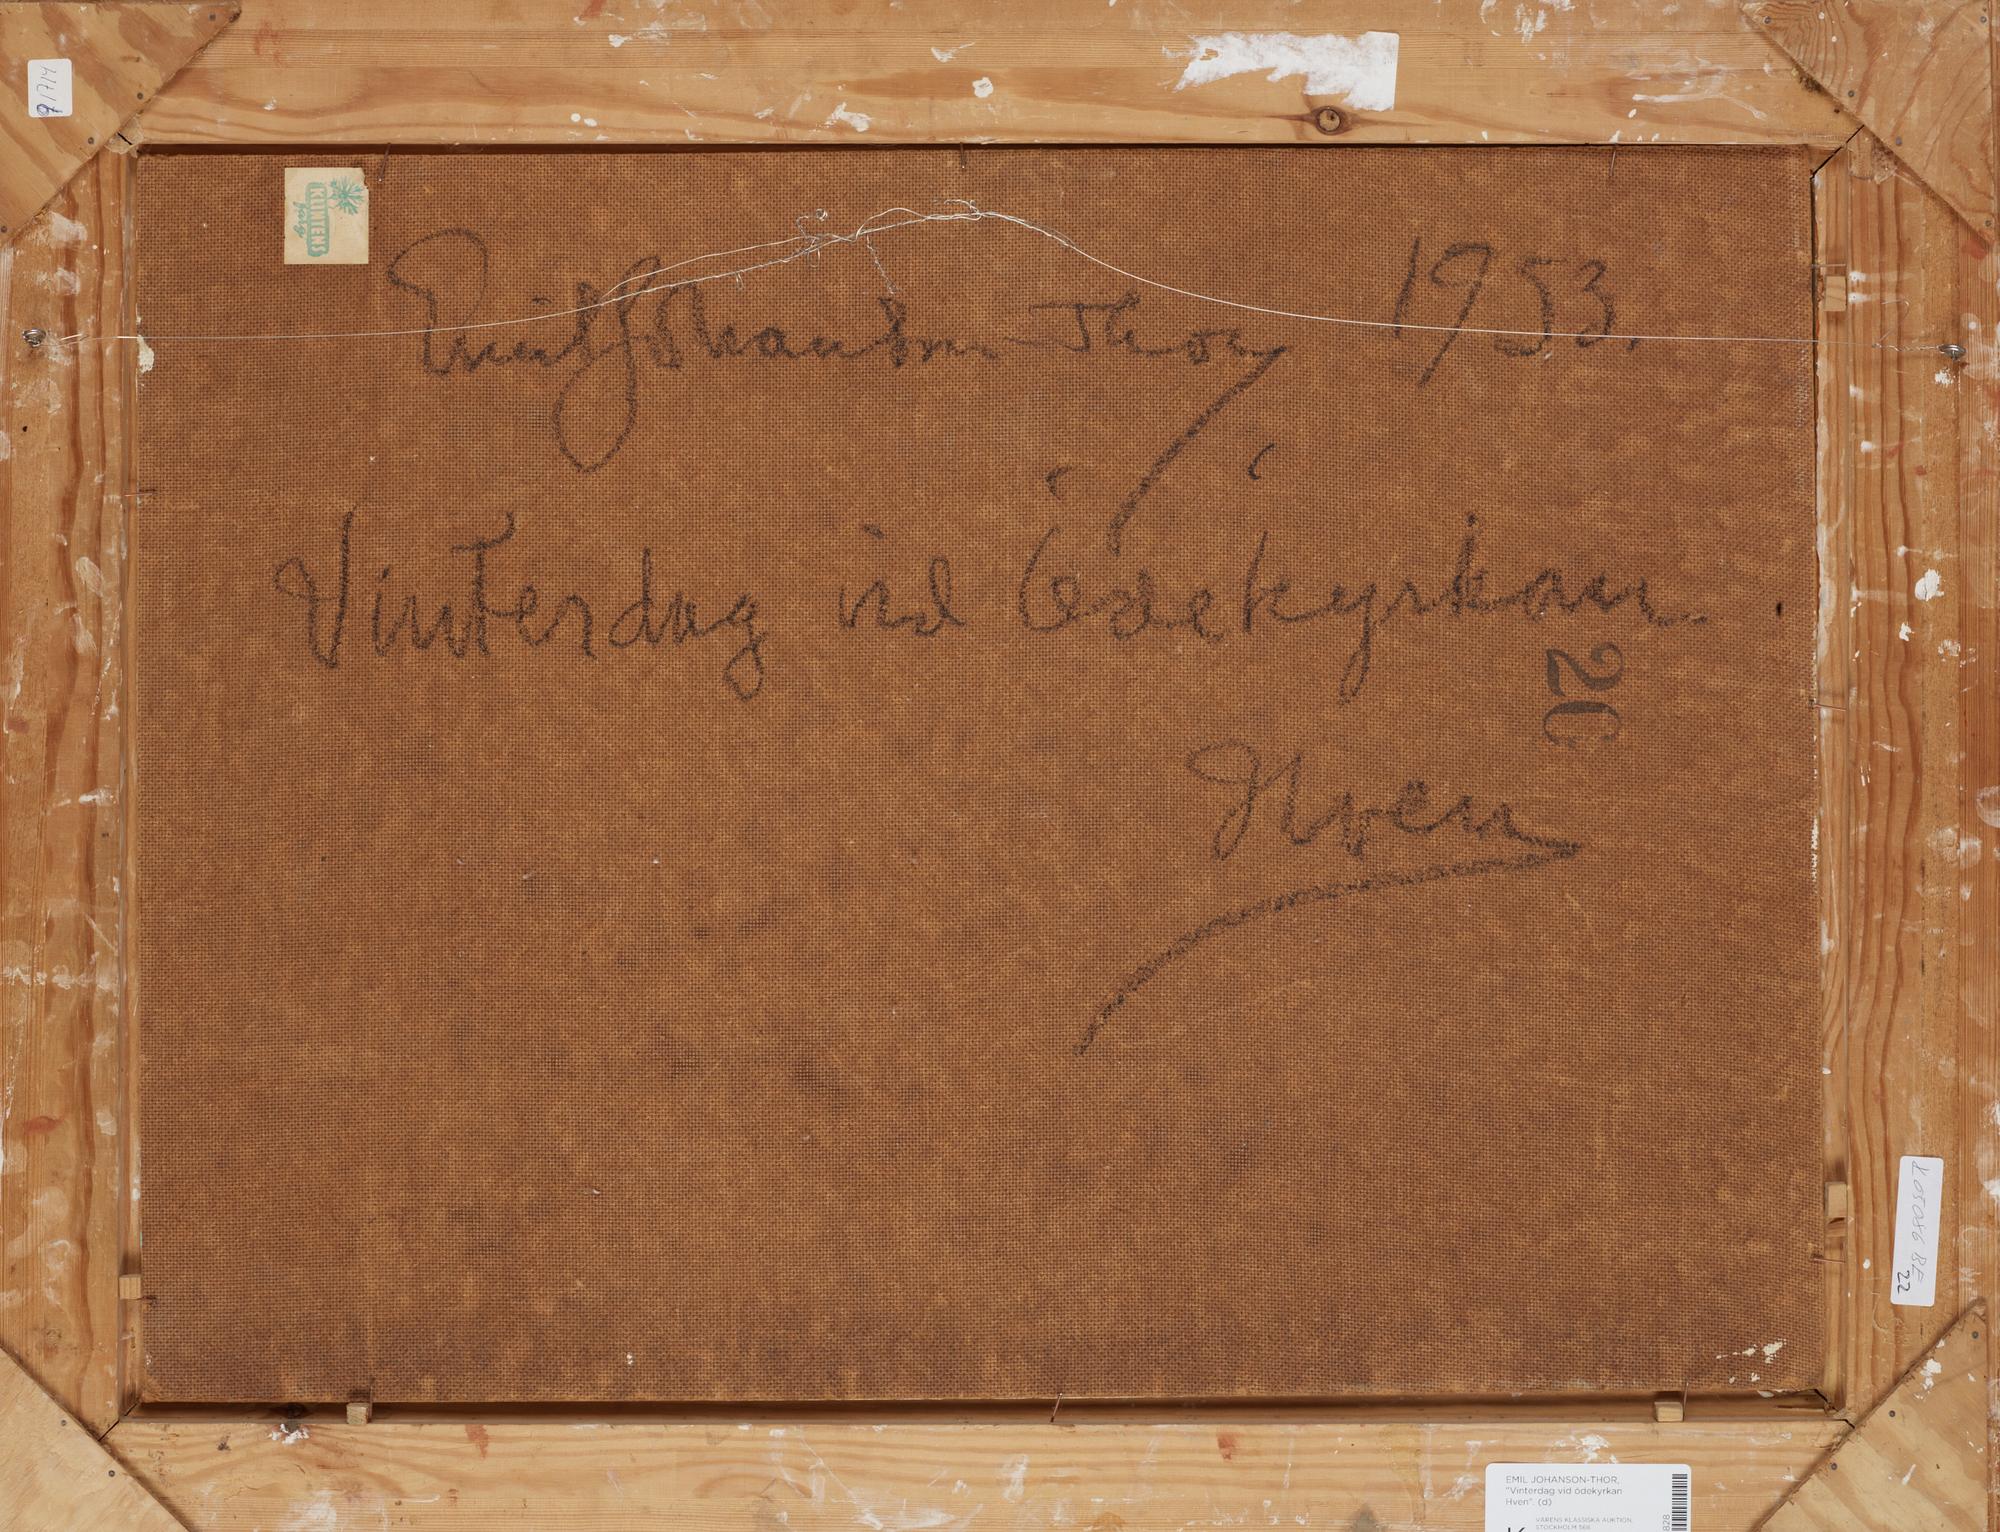 KUNTZENS
färg
Emil Johanson-Thor 1953.
Vinterdag vid Ödekyrkan.
20
Hven
K05086 BE
22
EMIL JOHANSON-THOR,
"Vinterdag vid ödekyrkan
Hven". (d)
VÅRENS KLASSISKA AUKTION,
STOCKHOLM 568
828